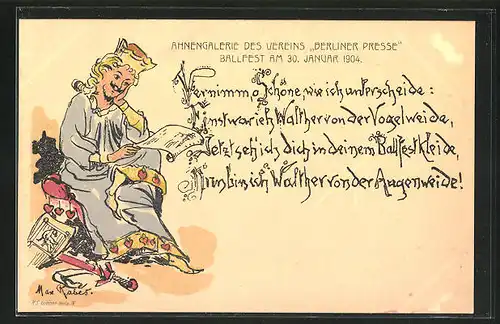 AHNENGALERIE DES VEREINS „BERLINER PRESSE"
BALLFEST AM 30. JANUAR 1904.
Vernimm, o Schöne, wie ich unterscheide:
Einst war ich Walther von der Vogelweide,
Jetzt seh' ich dich in deinem Ballfestkleide,
Nun bin ich Walther von der Augenweide!
Max Rabes.